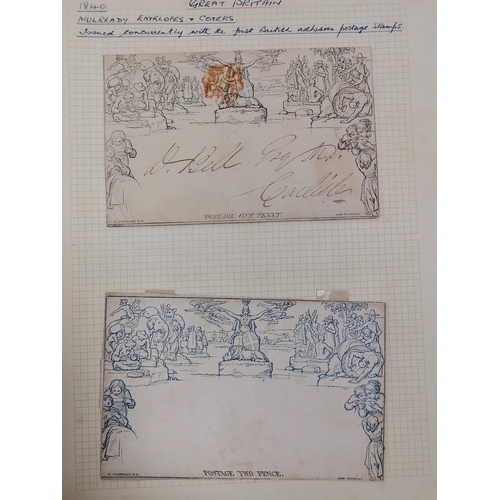 1840
GREAT BRITAIN
MULREADY ENVELOPES & COVERS
Issued concurrently with the first British adhesive postage stamps
D. Bell Esq
POSTAGE ONE PENNY.
POSTAGE TWO PENCE.